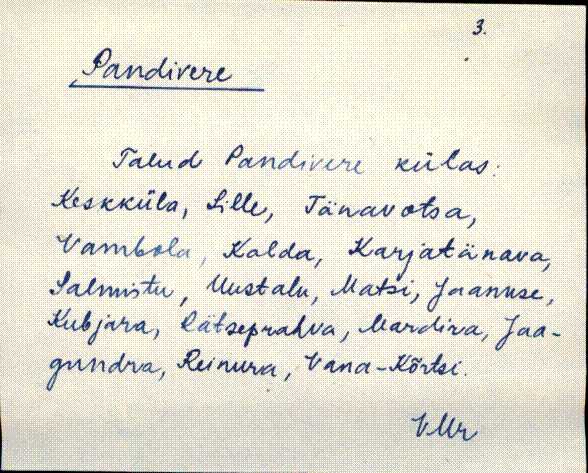 3.
Pandivere
Talud Pandivere külas:
Keskküla, Lille, Tänavotsa,
Vambola, Kalda, Karjatänava,
Salmistu, Uustalu, Matsi, Jaanuse,
Kubjara, Rätseprahva, Mardira, Jaa-
gundra, Reinura, Vana-Kõrtsi.
VMr